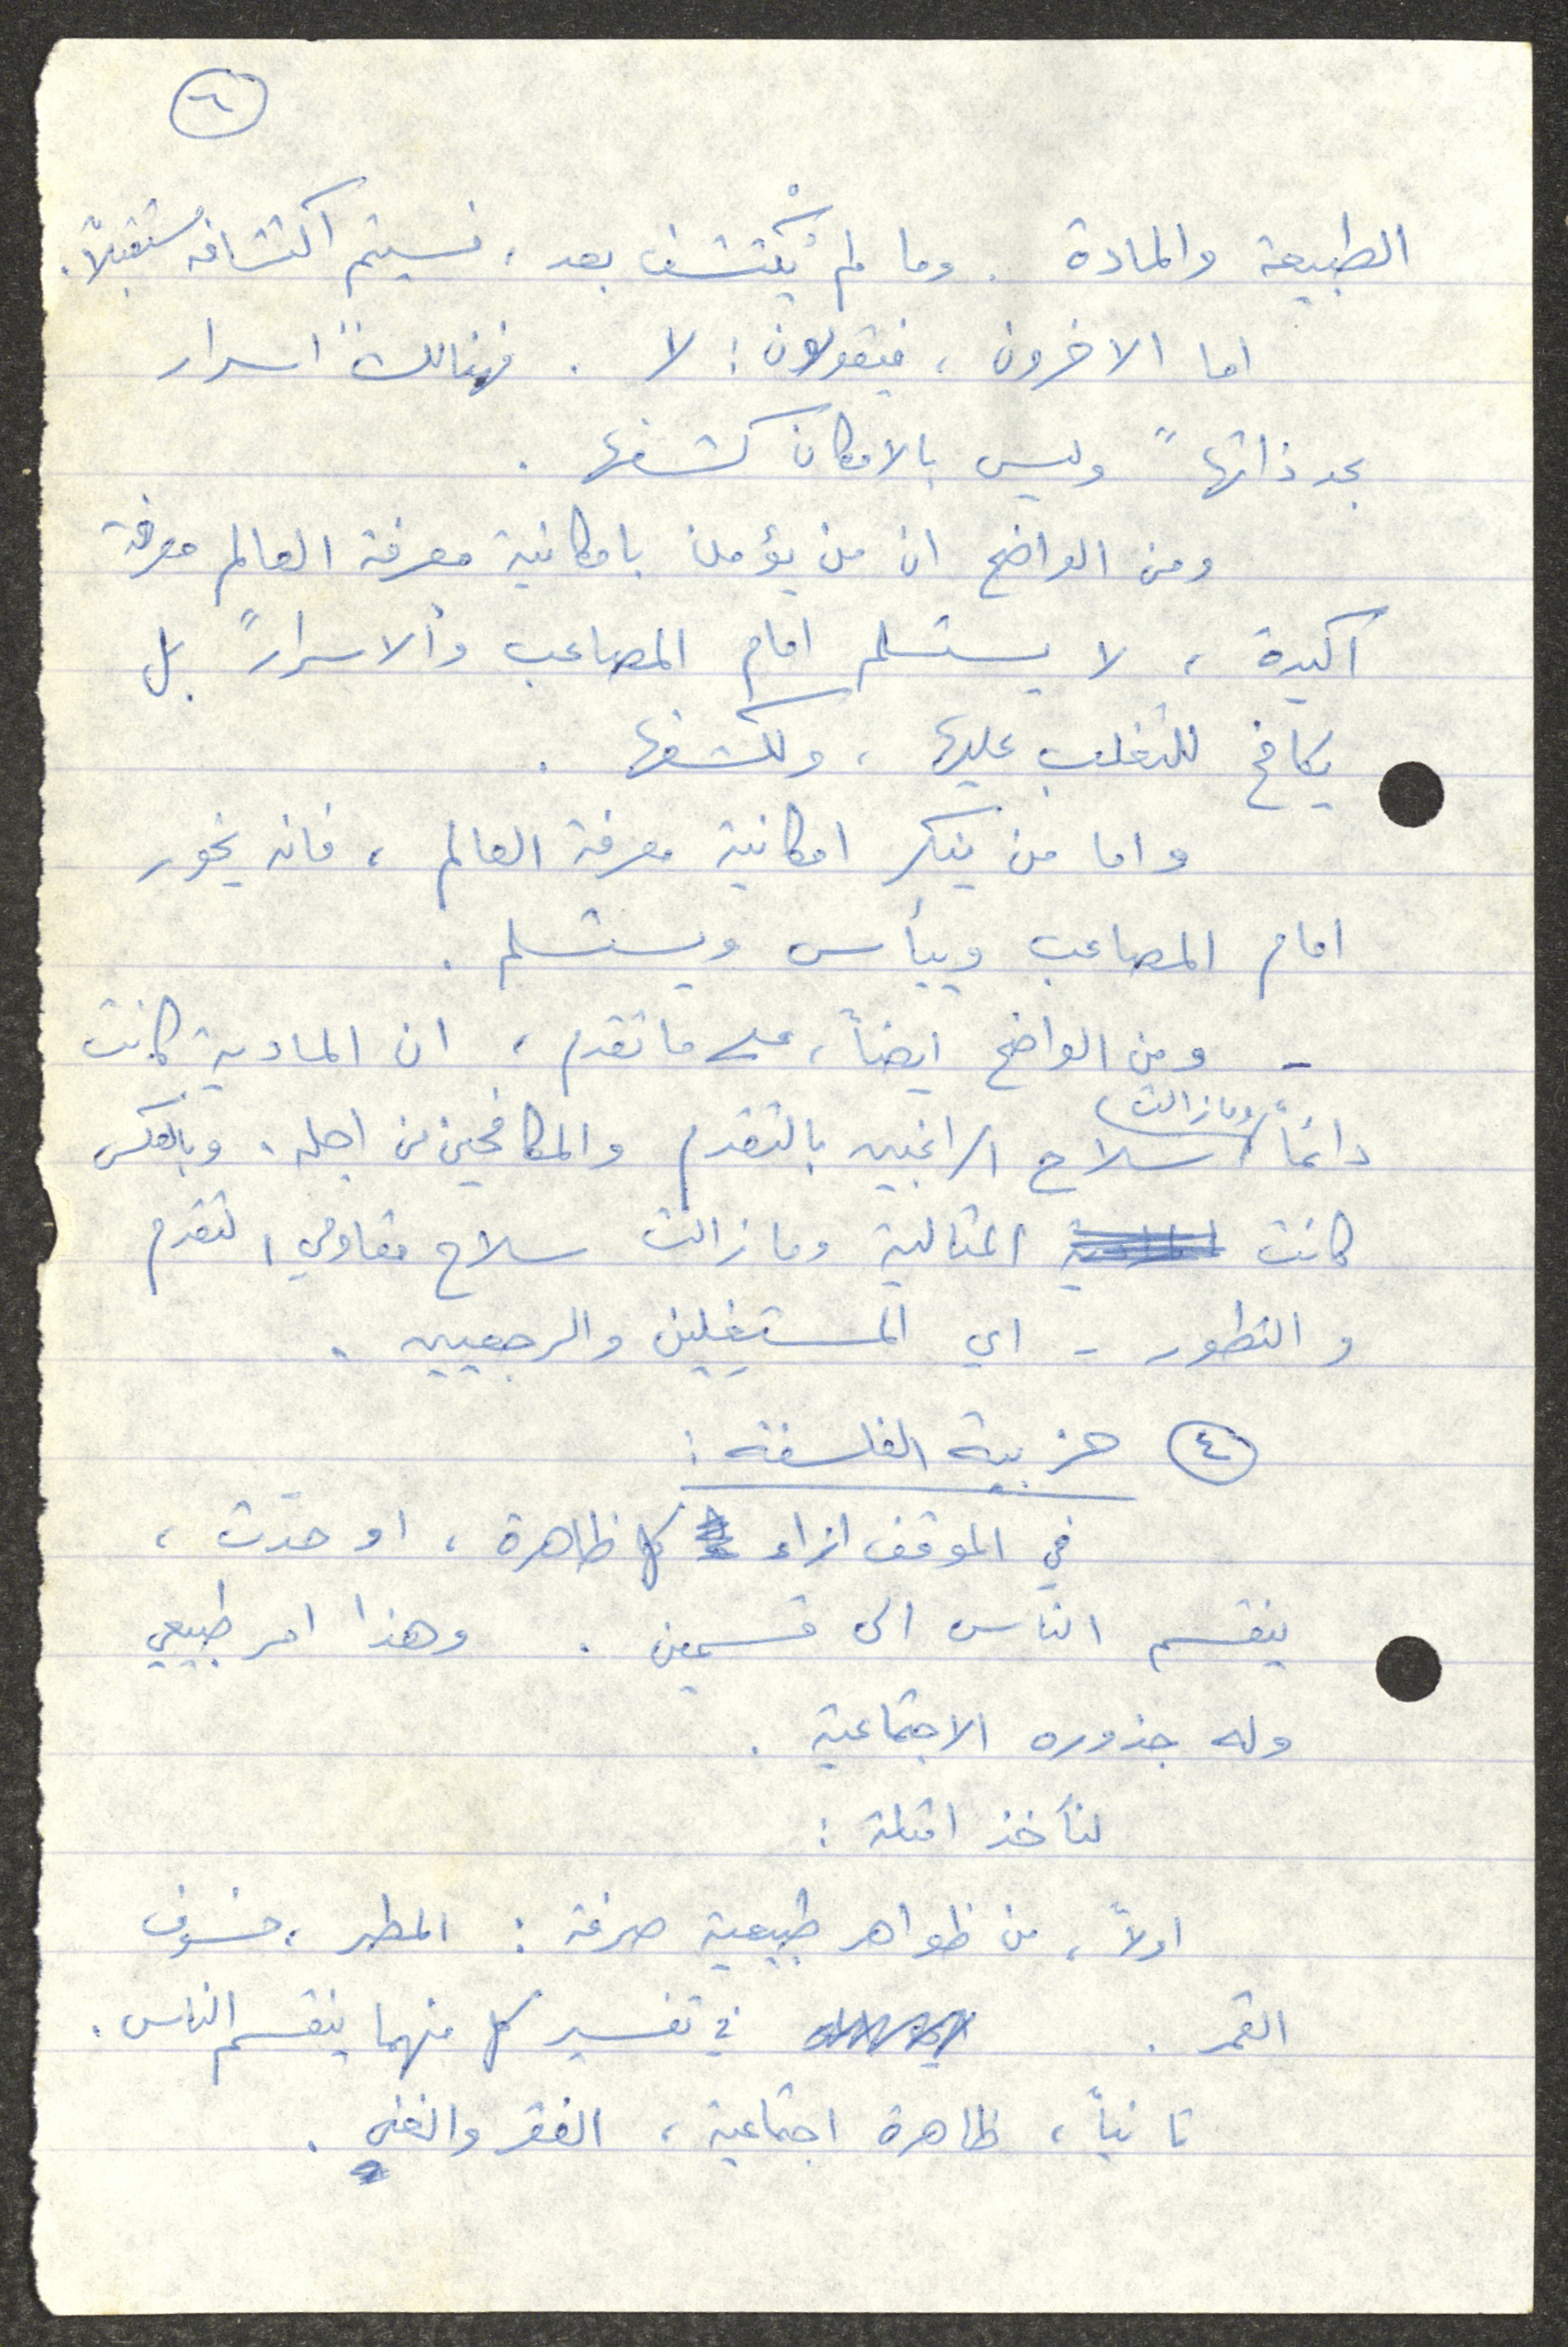 ٦
الطبيعة والمادة . وما لم يُكْتشف بعد ، فسيتم اكتشافه مُستقبلاً .
اما الاخرون ، فيقولون : لا . فهنالك "اسرار
بحد ذاتها" وليس بالامكان كشفها .
ومن الواضح ان من يؤمن بامكانية معرفة العالم معرفة
اكيدة ، لا يستسلم امام المصاعب و"الاسرار" بل
يكافح للتغلب عليها ، ولكشفها .
واما من ينكر امكانية معرفة العالم ، فانه يخور
امام المصاعب وييأس ويستسلم .
- ومن الواضح ايضاً ، على ما تقدم ، ان المادية كانت
دائماً وما زالت سلاح الراغبين بالتقدم والمكافحين من اجله . وبالعكس
كانت المثالية وما زالت سلاح مقاومي التقدم
و التطور - اي المستغِلين والرجعيين .
٤ حزبية الفلسفة :
في الموقف ازاء كل ظاهرة ، او حَدَث ،
ينقسم الناس الى قسمين . وهذا امر طبيعي
وله جذوره الاجتماعية .
لنأخذ امثلة :
اولاً ، من ظواهر طبيعية صرفة : المطر ، خسوف
القمر . في تفسير كل منهما ينقسم الناس .
ثانياً ، ظاهرة اجتماعية ، الفقر والغنى .